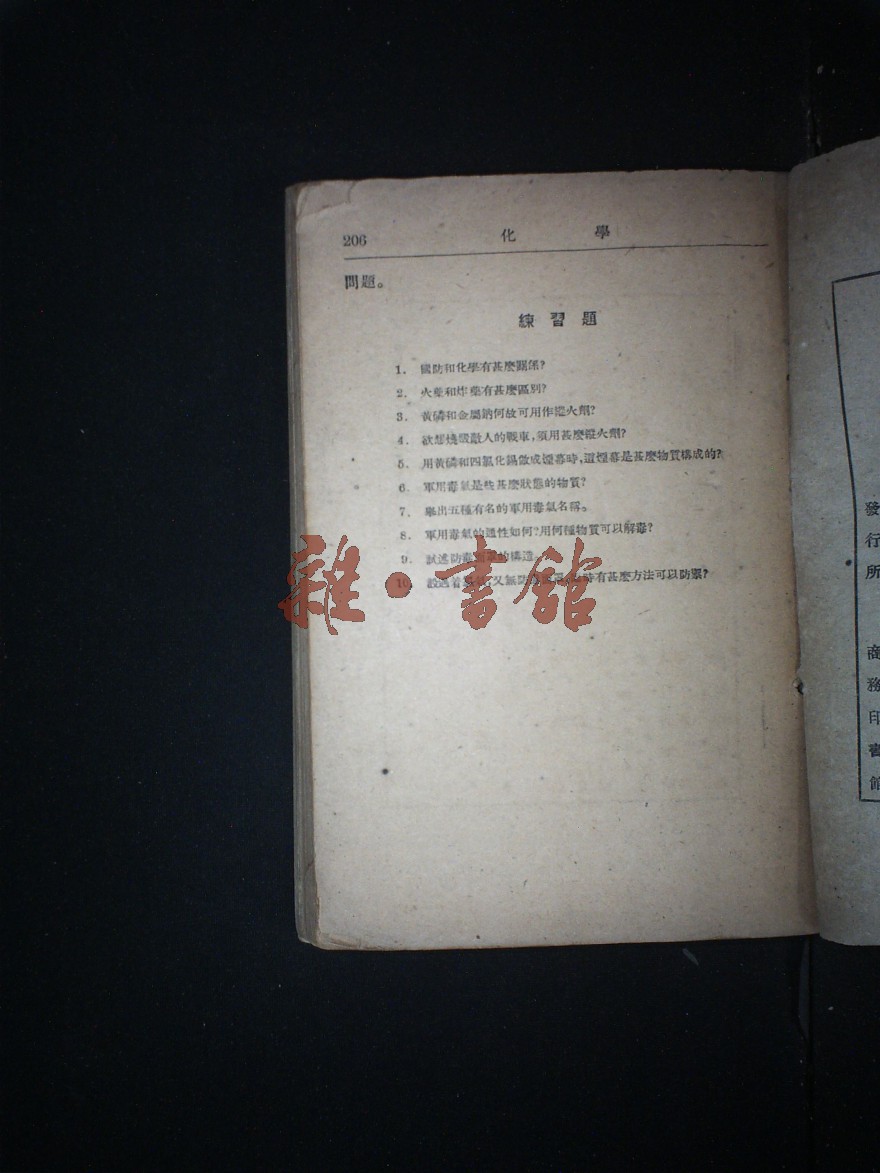 206 化 學
問題。
練習題
1. 國防和化學有甚麼關係?
2. 火藥和炸藥有甚麼區別?
3. 黃磷和金屬鈉何故可用作縱火劑?
4. 欲想燒燬敵人的戰車,須用甚麼縱火劑?
5. 用黃磷和四氯化錫散成煙幕時,這煙幕是甚麼物質構成的?
6. 軍用毒氣是些甚麼狀態的物質?
7. 舉出五種有名的軍用毒氣名稱。
8. 軍用毒氣的通性如何?用何種物質可以解毒?
9. 試述防毒的構造。
10. 設遇着又無防時有甚麼方法可以防禦?
雜·書館
發行所
商務印書館